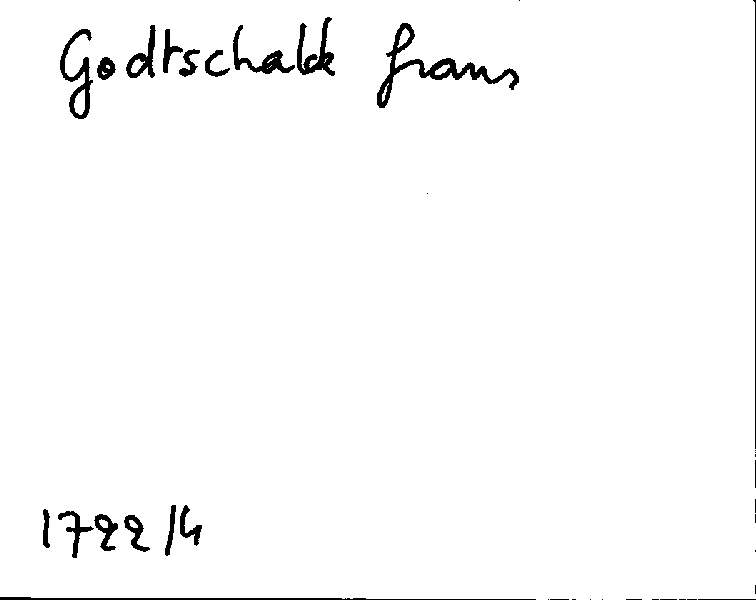 Godtschalck frans
1722/4